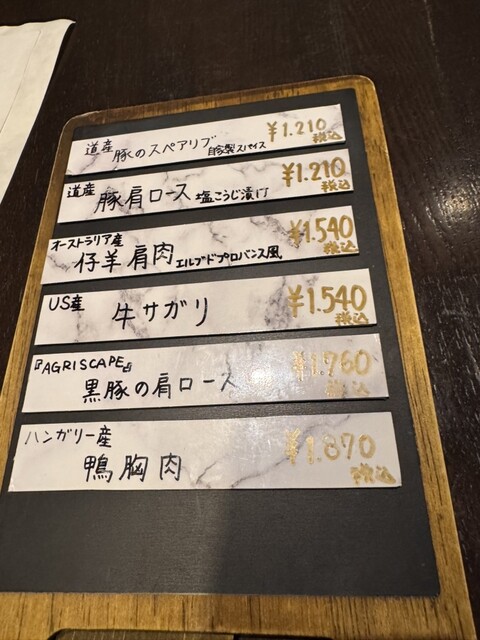 道産 豚のスペアリブ 自家製スパイス ¥1.210 税込
道産 豚肩ロース 塩こうじ漬け ¥1.210 税込
オーストラリア産 仔羊肩肉 エルブドプロバンス風 ¥1.540 税込
US産 牛サガリ ¥1.540 税込
『AGRISCAPE』 黒豚の肩ロース ¥1.760 税込
ハンガリー産 鴨胸肉 ¥1.870 税込